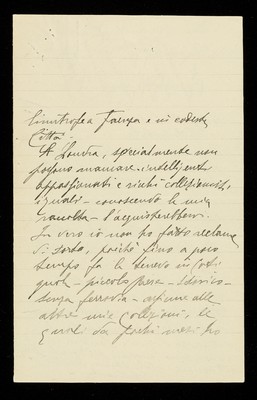 limitrofe a Faenza e in codesta
Città.
A Londra, specialmente non
possono mancare intelligenti
appassionati e ricchi collezionisti,
i quali – conoscendo la mia
raccolta – l'acquisterebbero.
In vero io non ho fatto reclame
di sorta, poichè fino a poco
tempo fa la tenevo in Coti
gnola – piccolo paese –
senza ferrovia – assieme alle
altre mie collezioni, le
quali da pochi mesi ho